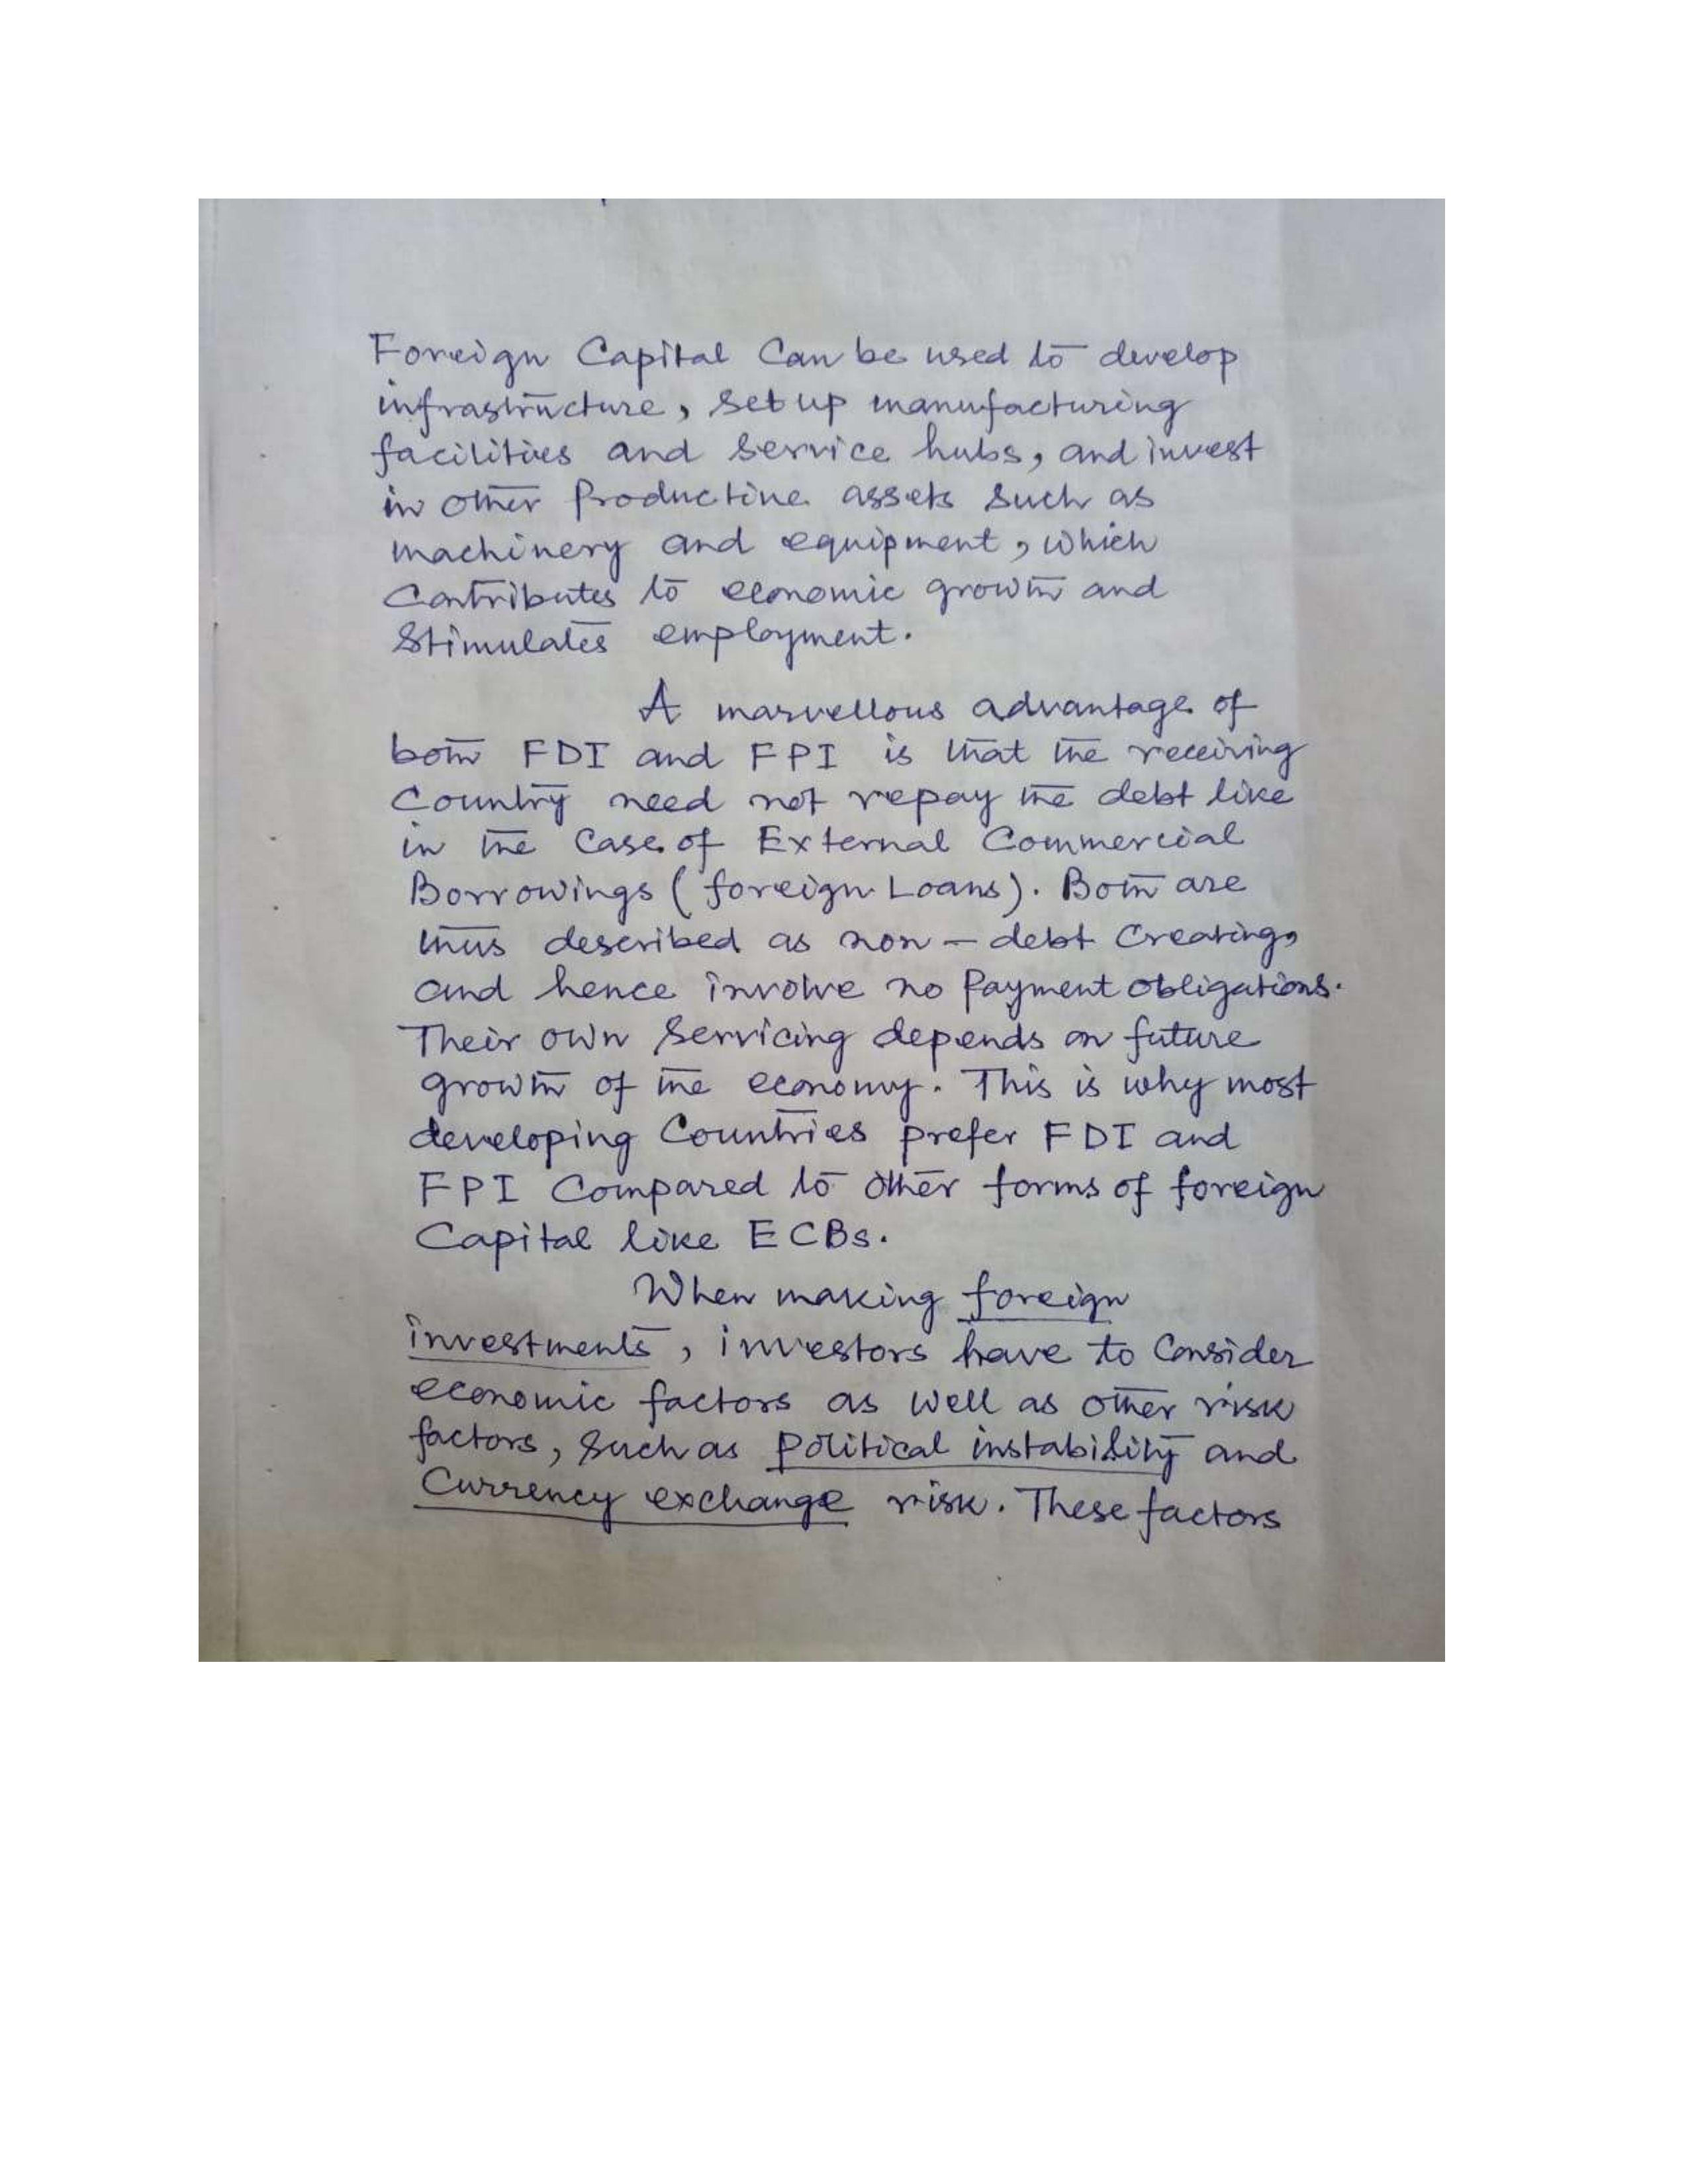 Foreign Capital Can be used to develop
infrastructure, set up manufacturing
facilities and service hubs, and invest
in other Productive assets such as
machinery and equipment, which
Contributes to economic growth and
Stimulates employment.
A marvellous advantage of
both FDI and FPI is that the receiving
Country need not repay the debt like
in the Case of External Commercial
Borrowings (foreign Loans). Both are
thus described as non-debt Creating,
and hence involve no Payment obligations.
Their own Servicing depends on future
growth of the economy. This is why most
developing Countries prefer FDI and
FPI Compared to other forms of foreign
Capital like ECBs.
When making foreign
investments, investors have to Consider
economic factors as well as other risk
factors, such as Political instability and
Currency exchange risk. These factors